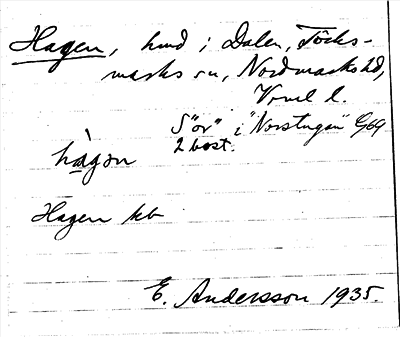 Hagen, hmd i Dalen, Töcks-
marks sn, Nordmarks hd,
Vrml l.
S "ör" i "Norstugan" G69
2 bost.
hàgon
Hagen kb
E. Andersson 1935.